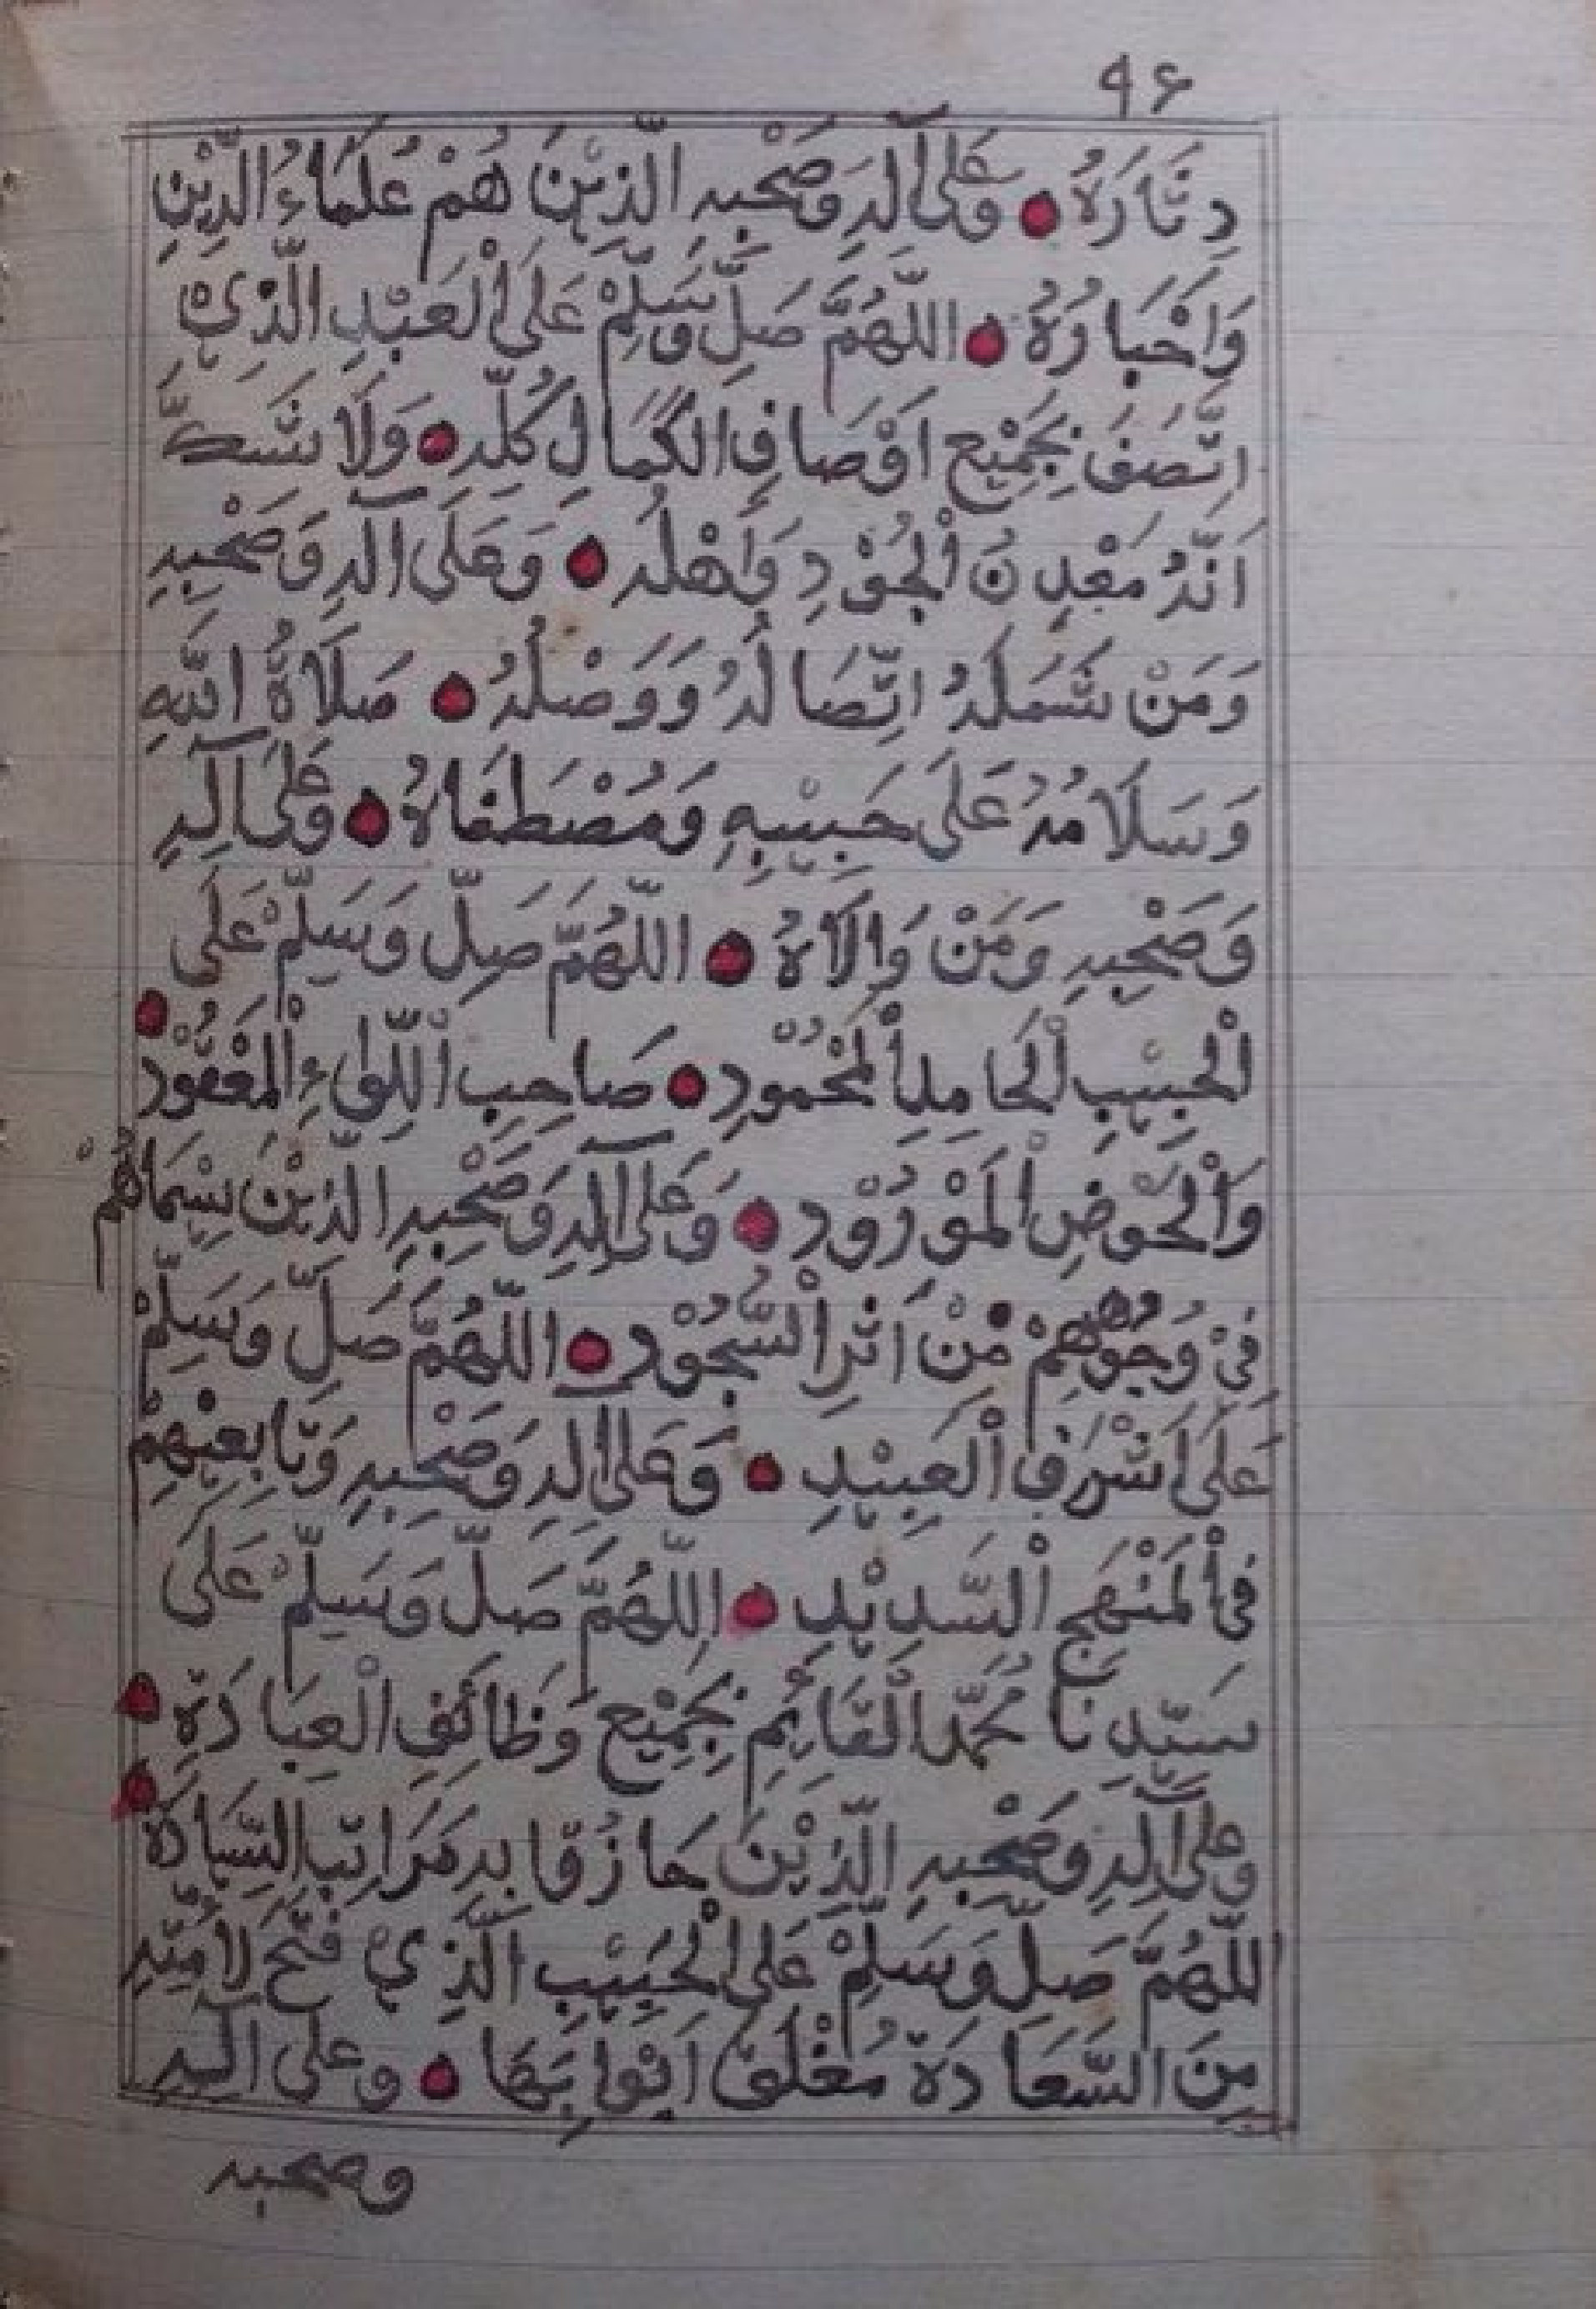 ٩٤
دِثَارَهُ وَعَلَى آلِهِ وَصَحْبِهِ الَّذِيْنَ هُمْ عُلَمَاءُ الدِّيْنِ
وَاَحْبَارُهُ اللّٰهُمَّ صَلِّ وَسَلِّمْ عَلَى الْعَبْدِ الَّذِيْ
اتَّصَفَ بِجَمِيْعِ اَوْصَافِ الْكَمَالِ كُلِّهِ وَلَا شَكَّ
اَنَّهُ مَعْدِنُ الْجُوْدِ وَاَهْلُهُ وَعَلَى آلِهِ وَصَحْبِهِ
وَمَنْ شَمَلَهُ اتِّصَالُهُ وَوَصْلُهُ صَلَاةُ اللهِ
وَسَلَامُهُ عَلَى حَبِيْبِهِ وَمُصْطَفَاهُ وَعَلَى آلِهِ
وَصَحْبِهِ وَمَنْ وَالَاهُ اللّٰهُمَّ صَلِّ وَسَلِّمْ عَلَى
الْحَبِيْبِ الْحَامِدِ الْمَحْمُوْدِ صَاحِبِ اللِّوَاءِ الْمَعْقُوْدِ
وَالْحَوْضِ الْمَوْرُوْدِ وَعَلَى آلِهِ وَصَحْبِهِ الَّذِيْنَ سِيْمَاهُمْ
فِيْ وُجُوْهِهِمْ مِنْ اَثَرِ السُّجُوْدِ اللّٰهُمَّ صَلِّ وَسَلِّمْ
عَلَى اَشْرَفِ الْعَبِيْدِ وَعَلَى آلِهِ وَصَحْبِهِ وَتَابِعِيْهِمْ
فِي الْمَنْهَجِ السَّدِيْدِ اللّٰهُمَّ صَلِّ وَسَلِّمْ عَلَى
سَيِّدِنَا مُحَمَّدٍ الْقَائِمِ بِجَمِيْعِ وَظَائِفِ الْعِبَادَةِ
وعَلَى آلِهِ وَصَحْبِهِ الَّذِيْنَ حَازُوْا بِهِ مَرَاتِبَ السِّيَادَةِ
اللّٰهُمَّ صَلِّ وَسَلِّمْ عَلَى الْحَبِيْبِ الَّذِي فَتَحَ لِاُمَّتِهِ
مِنَ السَّعَادَةِ مُغْلَقَ اَبْوَابِهَا وعلى آلِهِ
وصحبه